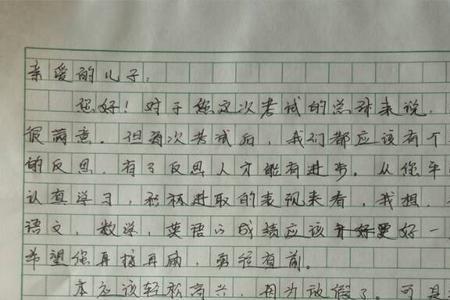 亲爱的儿子：
您好！对于您这次考试的总体来说，
很满意。但每次考试后，我们都应该有个
的反思，有了反思人才能有进步。从你平
认真学习，积极进取的表现来看，我想，
语文，数学，英语的成绩应该更好一
希望您再接再励，勇往直前。
本应该轻松高兴，因为放假了，可是